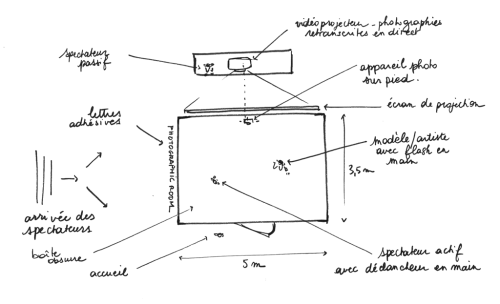 vidéoprojecteur - photographies
retranscrites en direct
spectateur
passif
appareil photo
sur pied.
écran de projection
lettres
adhésives
PHOTOGRAPHIC ROOM.
modèle/artiste
avec flash en
main
3,5m
arrivée des
spectateurs
boîte
obscure
accueil
5 m
spectateur actif
avec déclancheur en main